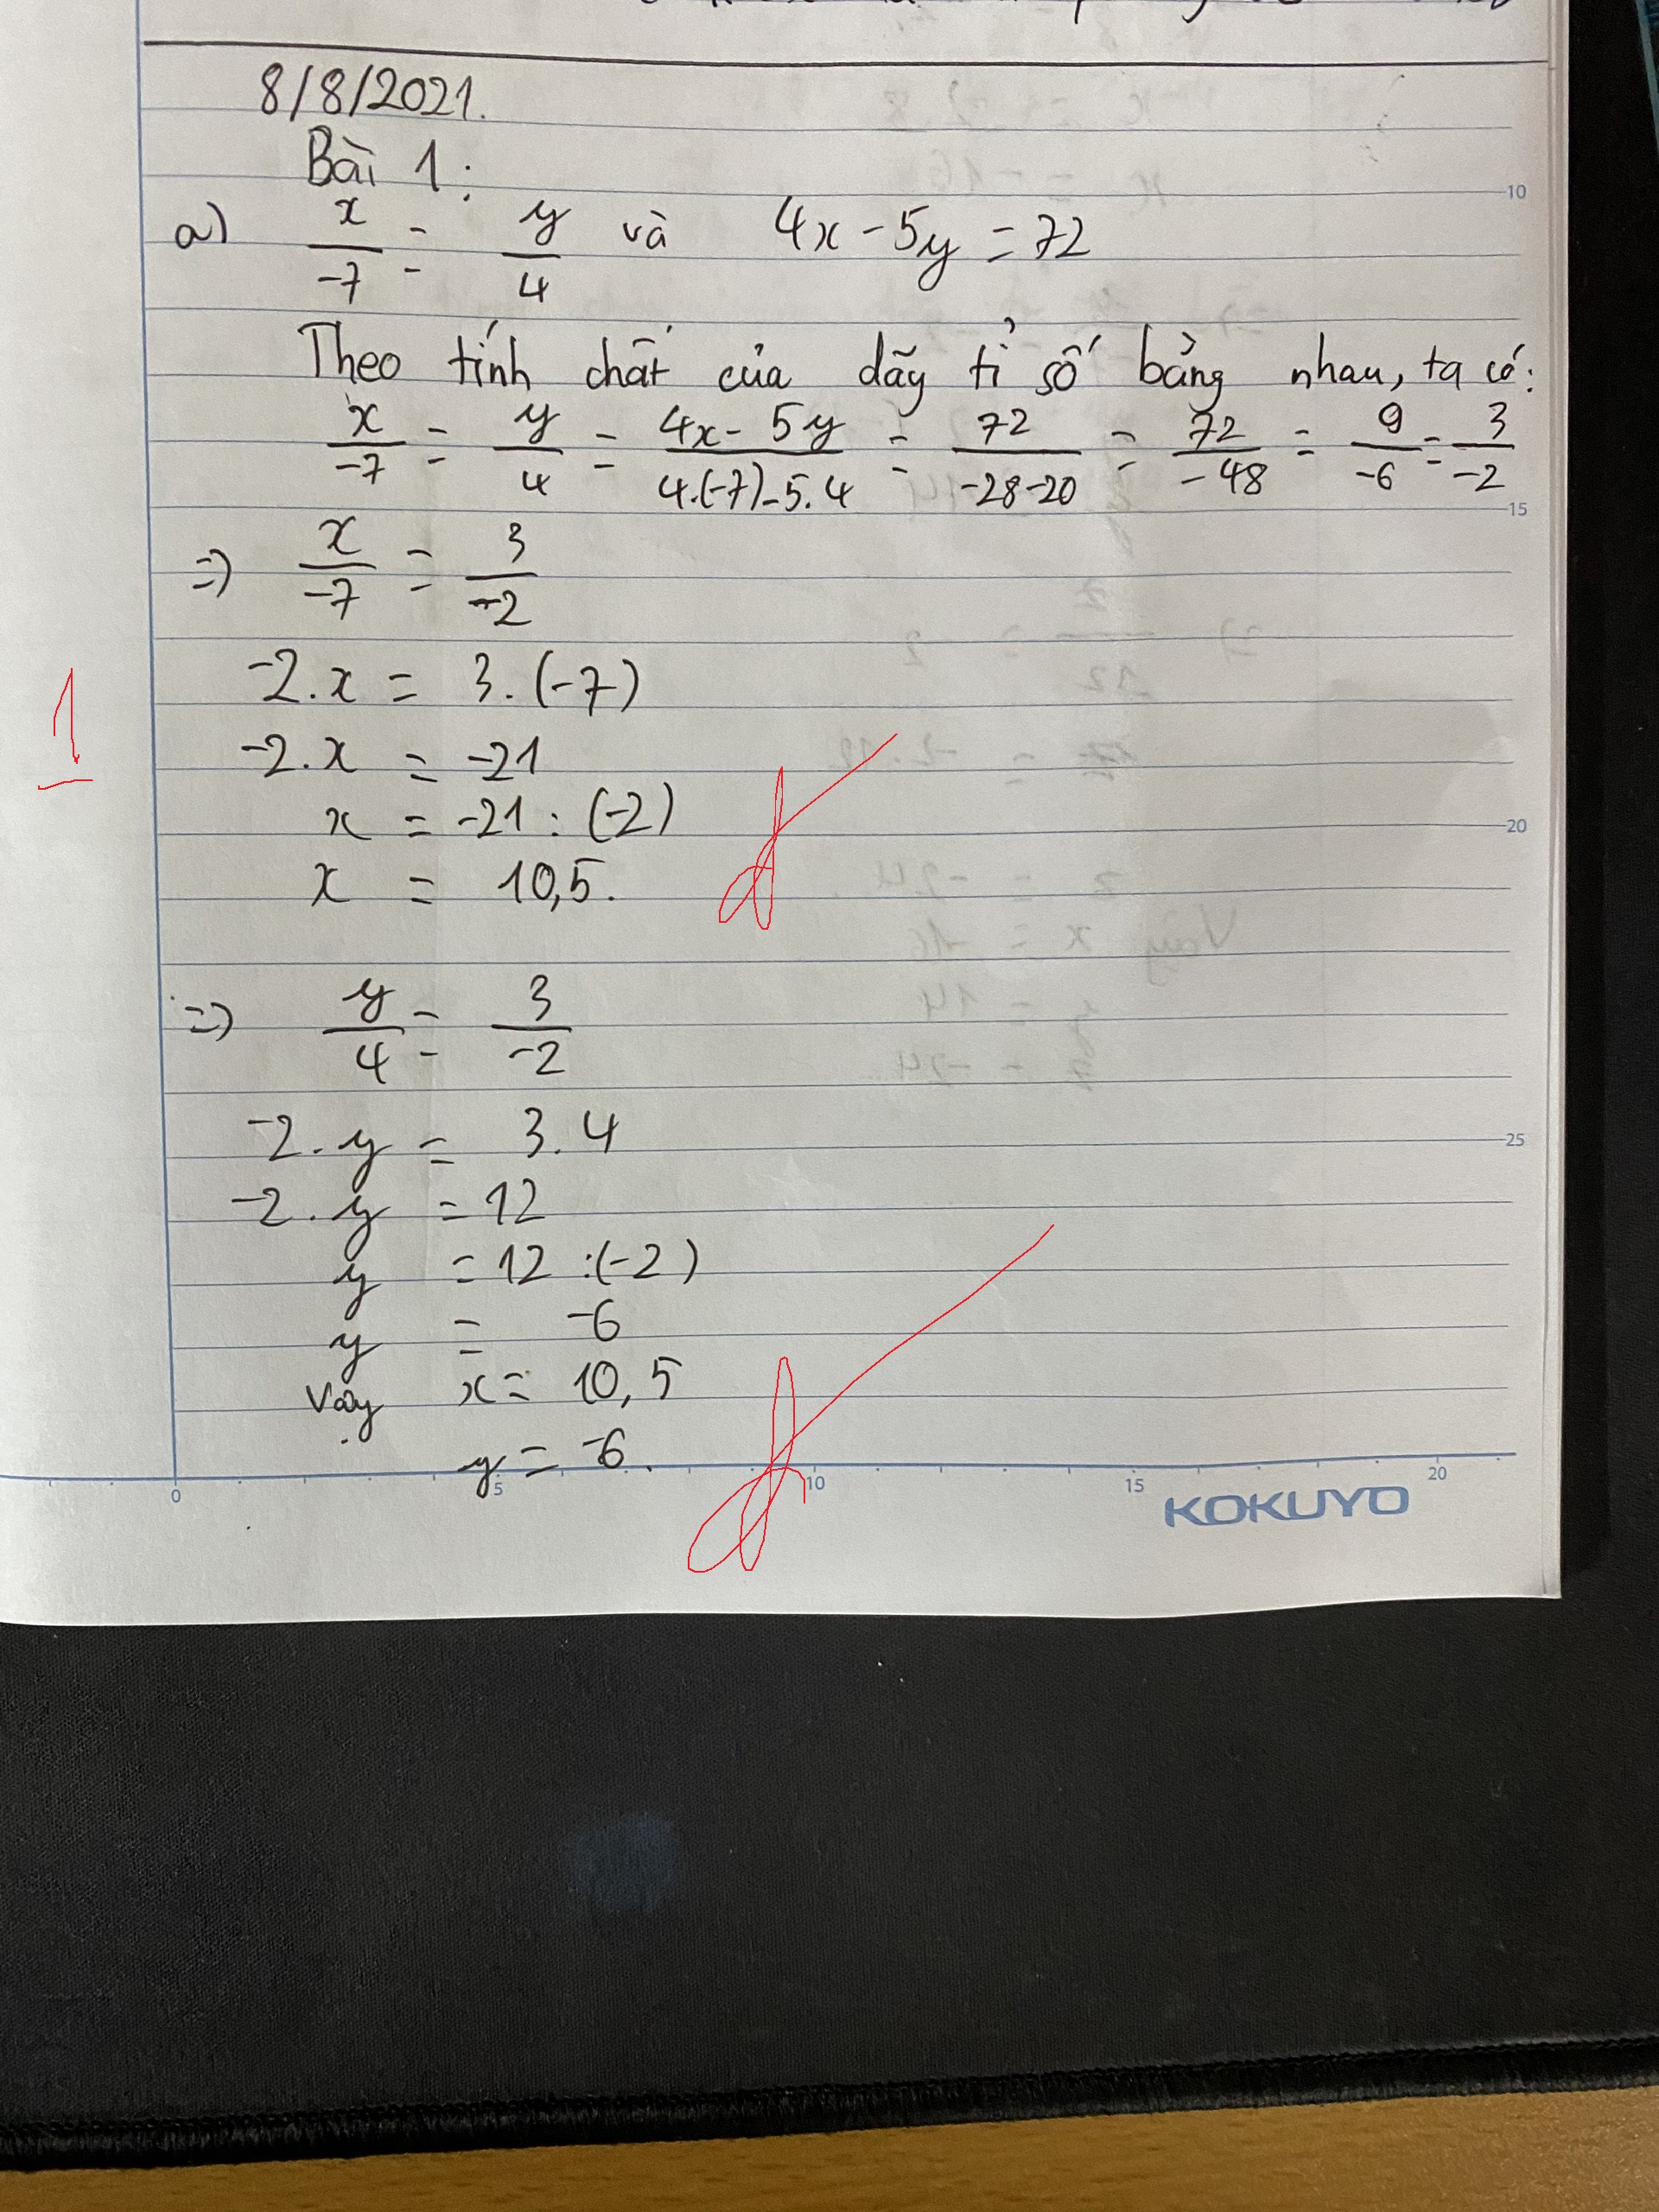 8/8/2021.
Bài 1:
a) x/-7 = y/4 và 4x - 5y = 72
Theo tính chất của dãy tỉ số bằng nhau, ta có:
x/-7 = y/4 = 4x - 5y/4.(-7)-5.4 = 72/-28-20 = 72/-48 = 9/-6 = 3/-2
=> x/-7 = 3/-2
-2.x = 3.(-7)
1
-2.x = -21
x = -21 : (-2)
x = 10,5.
=> y/4 = 3/-2
-2.y = 3.4
-2.y = 12
y = 12 :(-2)
y = -6
Vậy x = 10,5
y = -6.
0 5 10 15 20
KOKUYO
10
15
20
25